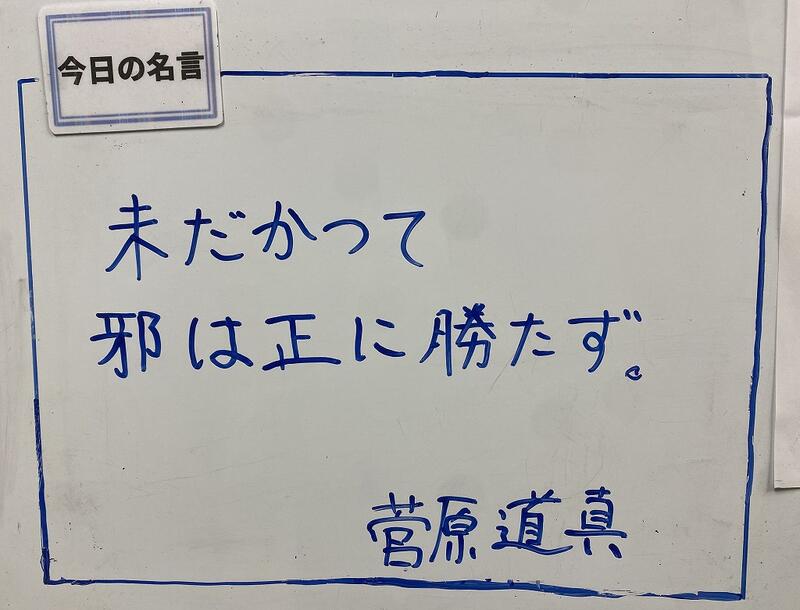 今日の名言
未だかつて
邪は正に勝たず。
菅原道真